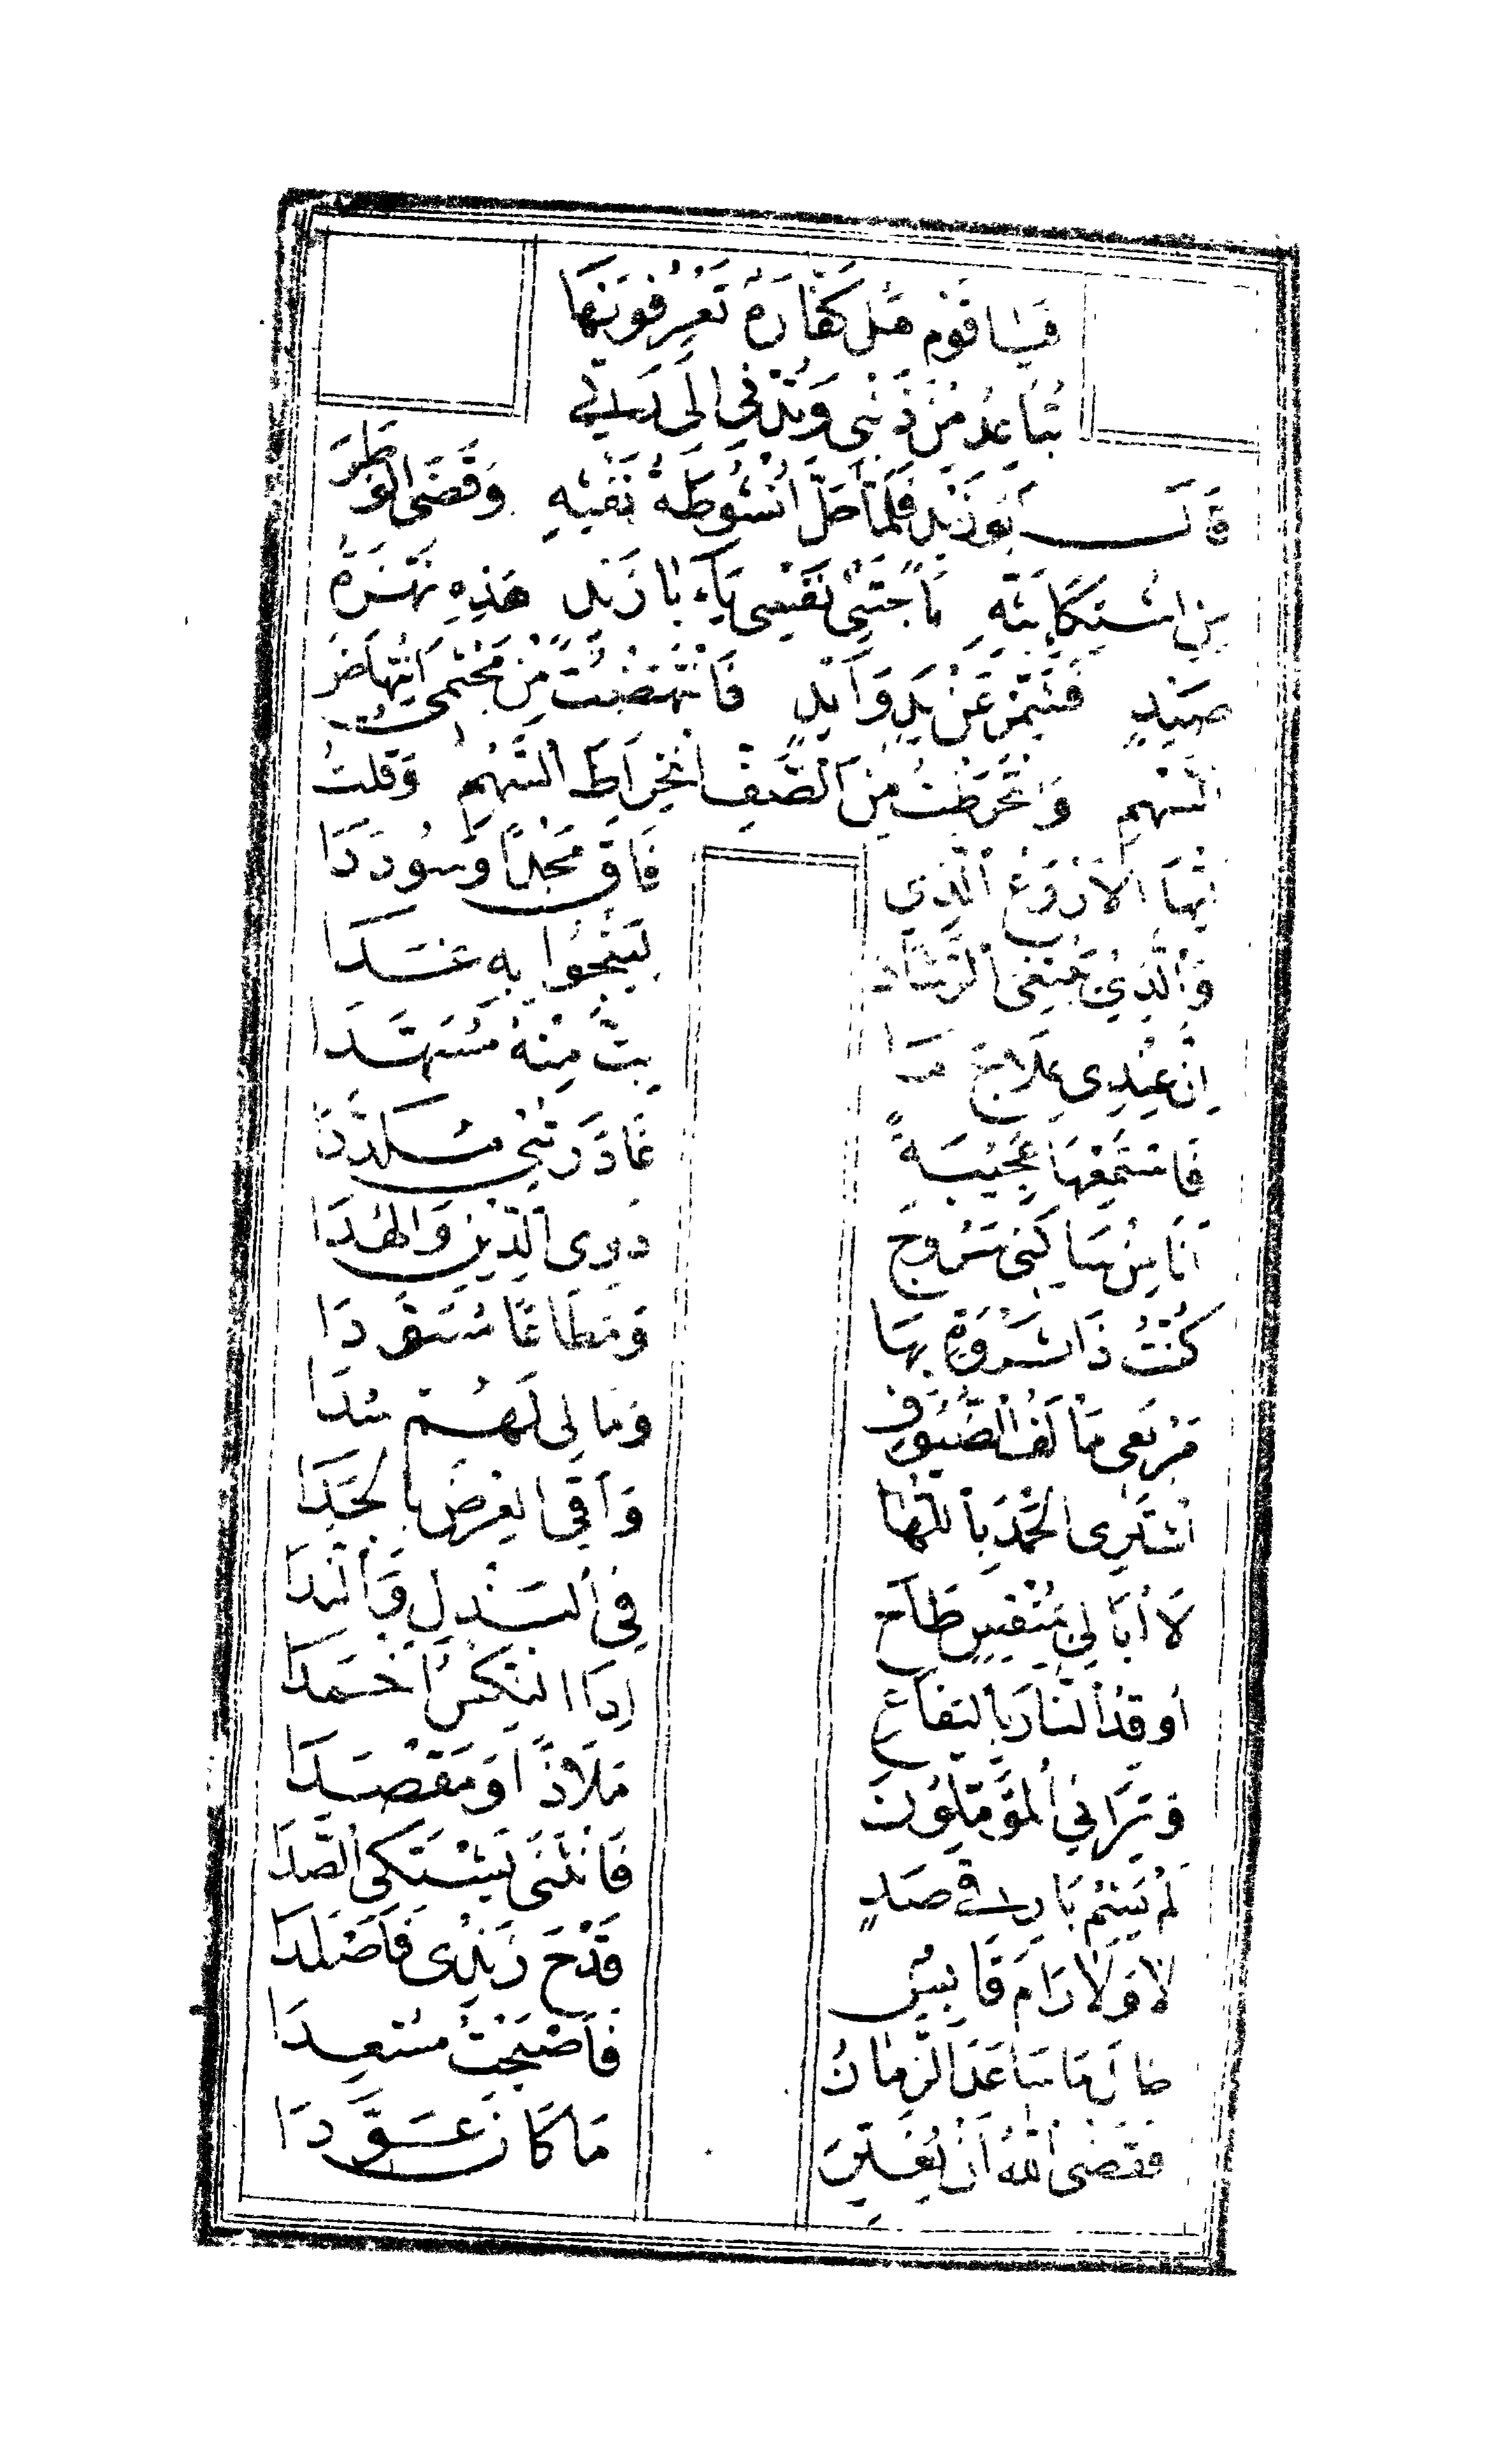 فَيَا قَوْمِ هَلْ كَفَّارَةٌ تَعْرِفُونَهَا
تُبَاعِدُ مِنْ ذَنْبِي وَتُدْنِي إِلَى رَبِّي
قَالَ أَبُو زَيْدٍ فَلَمَّا حَلَّ أُنْشُوطَةَ نَفْثِهِ وَقَضَى الْوَطَرَ
مِنِ اشْتِكَاءِ بَثِّهِ نَاجَتْنِي نَفْسِي يَا أَبَا زَيْدٍ هَذِهِ نُهْزَةُ
صَيْدٍ فَشَمِّرْ عَنْ يَدٍ وَأَيْدٍ فَانْتَهَضْتُ مِنْ مَجْثَمِي انْتِهَاضَ
الشَّهْمِ وَانْخَرَطْتُ مِنَ الصَّفِّ انْخِرَاطَ السَّهْمِ وَقُلْتُ
أَيُّهَا الْأَرْوَعُ الَّذِي فَاقَ مَجْدًا وَسُودَدَا
وَالَّذِي يَبْتَغِي الرَّشَادَ لِيَنْجُوا بِهِ غَدَا
إِنَّ عِنْدِي عِلَاجَ مَا بِتَّ مِنْهُ مُسَهَّدَا
فَاسْتَمِعْهَا عَجِيبَةً غَادَرَتْنِي مُلَدَّدَا
أَنَا مِنْ سَاكِنِي سَرُوجَ ذَوِي الدِّينِ وَالْهُدَا
كُنْتُ ذَا ثَرْوَةٍ بِهَا وَمُطَاعًا مُسَوَّدَا
مَرْبَعِي مَأْلَفُ الضُّيُوفِ وَمَالِي لَهُمْ سُدَا
أَشْتَرِي الْحَمْدَ بِاللُّهَا وَأَقِي الْعِرْضَ بِالْجَدَا
لَا أُبَالِي بِمُنْفِسٍ طَاحَ فِي الْبَذْلِ وَالنَّدَا
أُوقِدُ النَّارَ بِالْيَفَاعِ إِذَا النِّكْسُ أَخْمَدَا
وَيَرَانِي الْمُؤَمِّلُونَ مَلَاذًا وَمَقْصَدَا
لَمْ يَشِمْ بَارِقِي صَدٍ فَانْثَنَى يَشْتَكِي الصَّدَا
لَا وَلَا رَامَ قَابِسٌ قَدْحَ زَنْدِي فَأَصْلَدَا
طَالَ مَا سَاعَدَ الزَّمَانُ فَأَصْبَحْتُ مُسْعِدَا
فَقَضَى اللَّهُ أَنْ يُغَيِّرَ مَا كَانَ عَوَّدَا